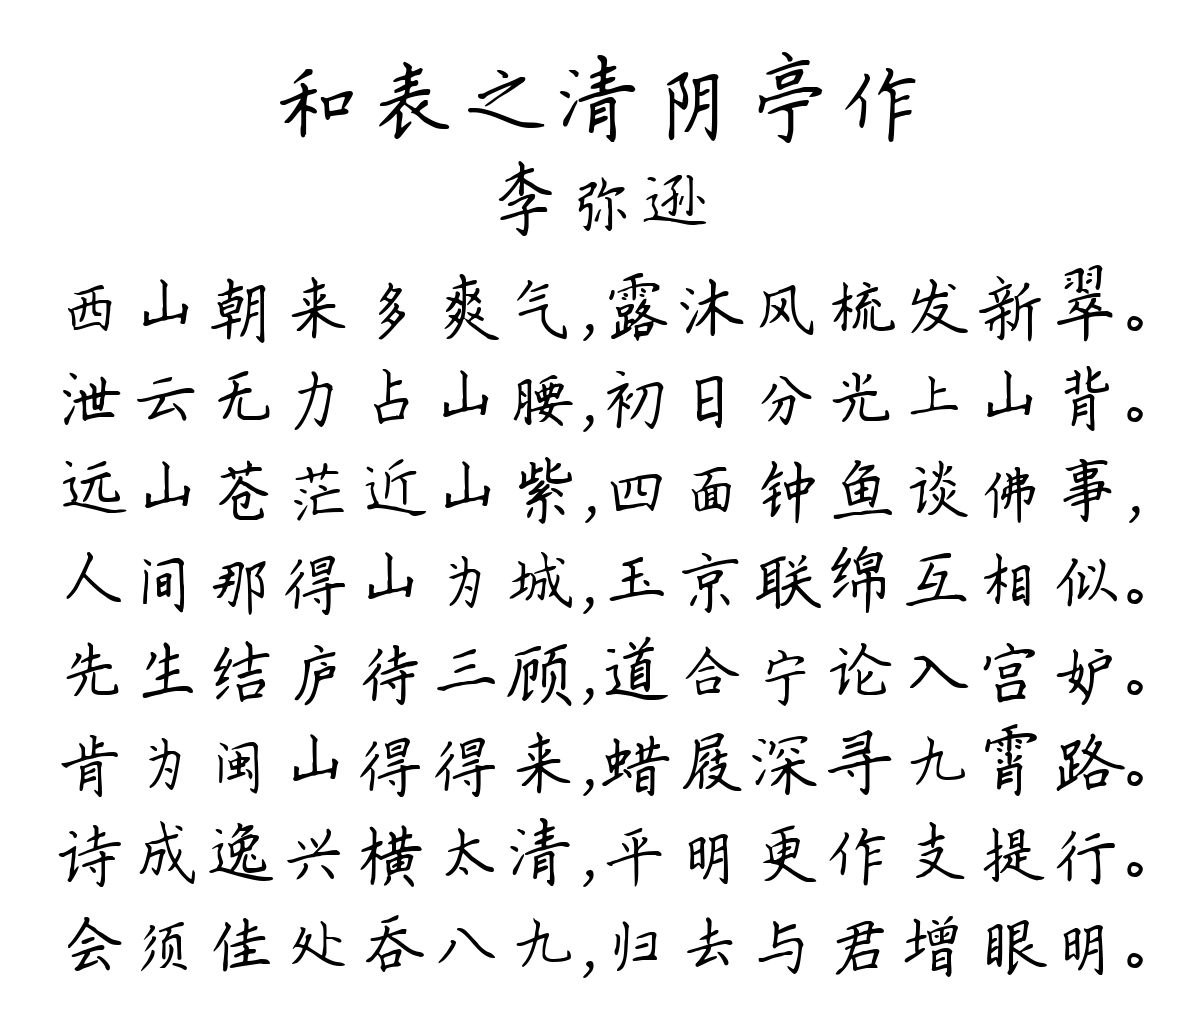 和表之清阴亭作
李弥逊
西山朝来多爽气,露沐风梳发新翠。
泄云无力占山腰,初日分光上山背。
远山苍茫近山紫,四面钟鱼谈佛事,
人间那得山为城,玉京联绵互相似。
先生结庐待三顾,道合宁论入宫妒。
肯为闽山得得来,蜡屐深寻九霄路。
诗成逸兴横太清,平明更作支提行。
会须佳处吞八九,归去与君增眼明。